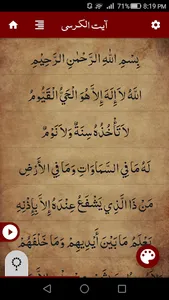 8:19 PM
آیت الکرسی
بِسْمِ اللهِ الرَّحْمٰنِ الرَّحِيْمِ
اَللهُ لَا إِلٰهَ إِلَّا هُوَ الْحَيُّ الْقَيُّومُ
لَا تَأْخُذُهُ سِنَةٌ وَلَا نَوْمٌ
لَهُ مَا فِي السَّمَاوَاتِ وَمَا فِي الْأَرْضِ
مَنْ ذَا الَّذِي يَشْفَعُ عِنْدَهُ إِلَّا بِإِذْنِهِ
يَعْلَمُ مَا بَيْنَ أَيْدِيهِمْ وَمَا خَلْفَهُمْ